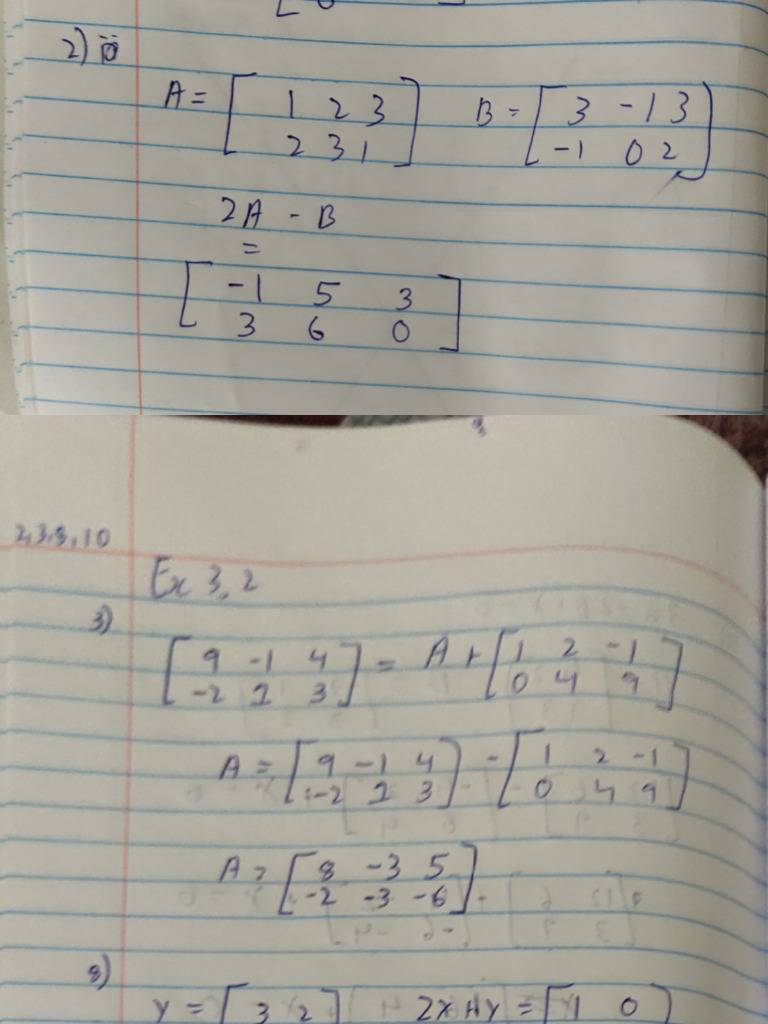 2)
A = [ 1 2 3 B = [ 3 -1 3
2 3 1 ] -1 0 2 ]
2A - B
=
[ -1 5 3
3 6 0 ]
2,3,8,10
Ex 3.2
3)
[ 9 -1 4 ] = A + [ 1 2 -1
-2 1 3 0 4 9 ]
A = [ 9 -1 4 ] - [ 1 2 -1
-2 1 3 0 4 9 ]
A = [ 8 -3 5
-2 -3 -6 ]
8)
Y = [ 3 2 ] 2X + Y = [ 1 0 ]